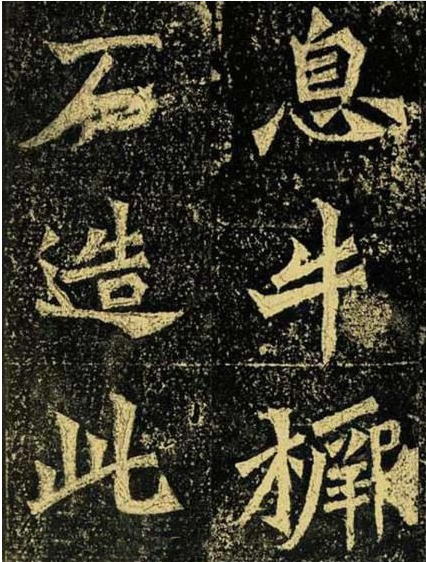 息牛橛
石造此